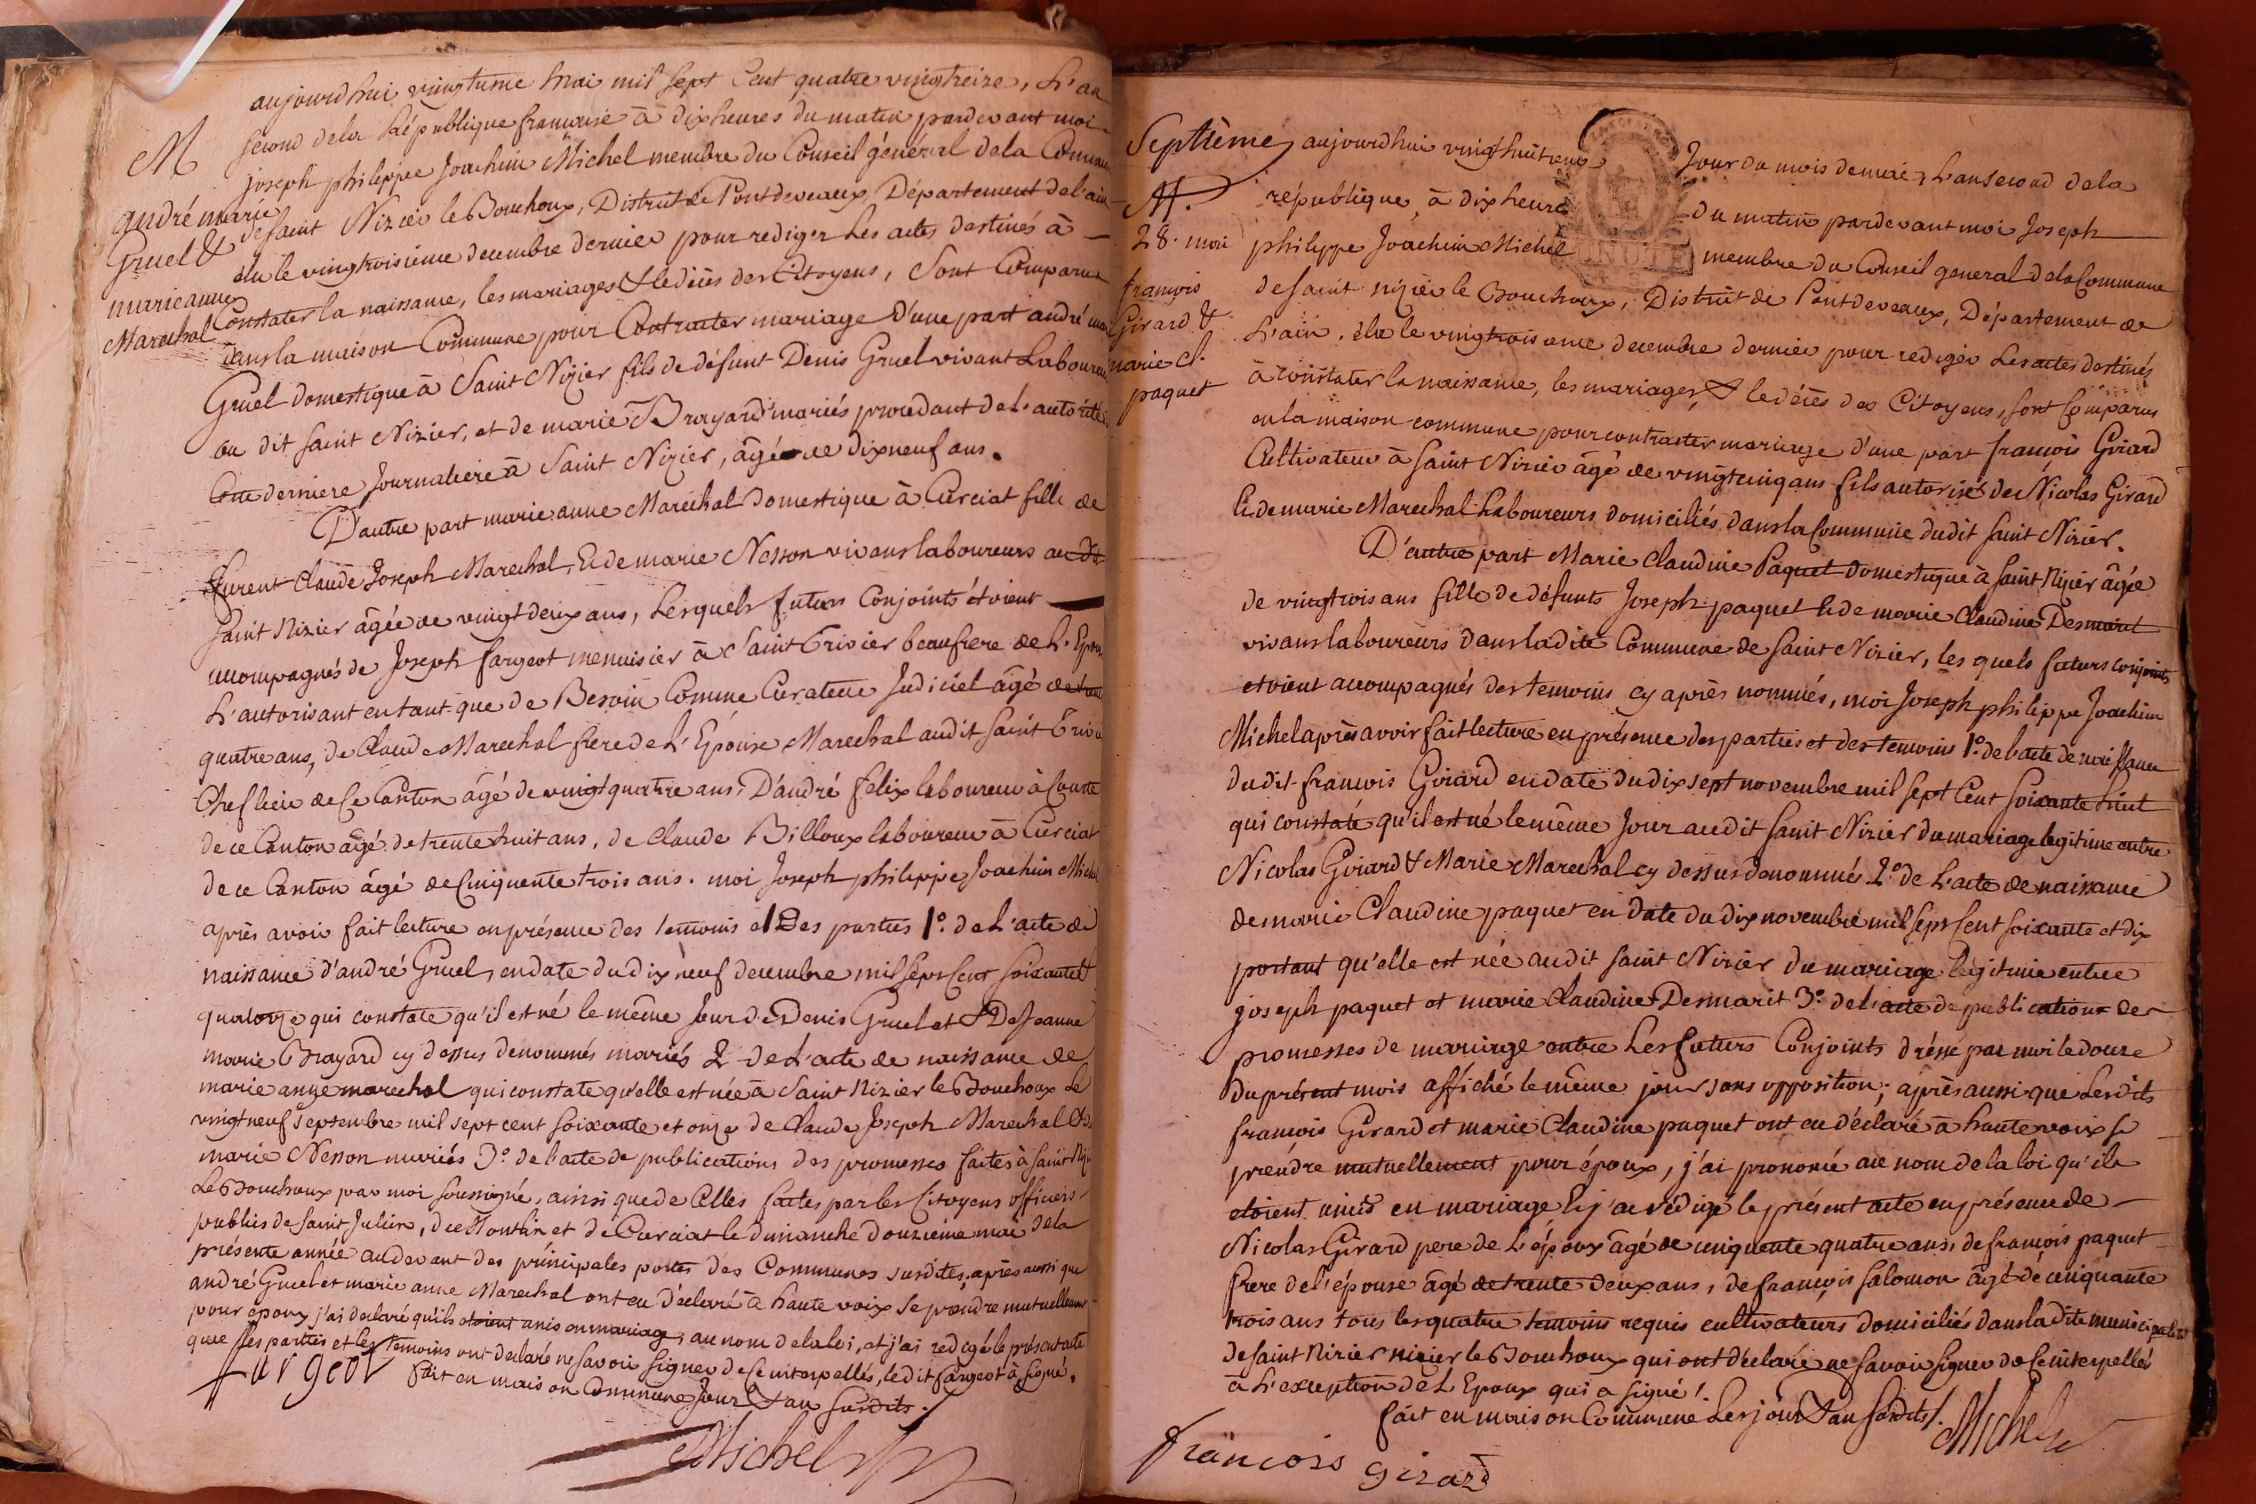 aujourdhui vingtune mai mil sept Cent quatre vingt treize, L'an
second de la République francaise à dix heures du matin pardevant moi
joseph philippe Joachim Michel membre du Conseil général de la Commune
de saint Nizier le Bouchoux, District de Pontdevaux, Département de l'ain
élu le vingtroisieme decembre dernier pour rediger les actes destinés à
Constater la naissance, les mariages & le décès des Citoyens, Sont Comparus
dans la maison Commune pour Contracter mariage d'une part andré marie
Gruel domestique à Saint Nizier fils de défunt Denis Gruel vivant Laboureur
au dit saint Nizier, et de marie Brayard mariés procedant de l'autorité de
Cette derniere Journaliere à Saint Nizier, âgé de dixneuf ans.
M
andré marie
Gruel &
marie anne
Marechal
D'autre part marie anne Marechal domestique à Curciat fille de
furent Claude Joseph Marechal, & de marie Nesson vivans laboureurs au dit
saint Nizier âgée de vingt deux ans, Lesquels futurs Conjoints étoient
accompagnés de Joseph fargeot menuisier à Saint Trivier beaufrere de L'Epoux
L'autorisant en tant que de Besoin Comme Curateur Judiciel âgé de trente
quatre ans, de Claude Marechal frere de L'Épouse Marechal audit saint Trivier
Chef lieu de Ce Canton âgé de vingt quatre ans, D'andré félix laboureur à Courte
de ce Canton âgé de trente huit ans, de Claude Billoux laboureur à Curciat
de ce Canton âgé de Cinquente trois ans. moi Joseph philippe Joachim Michel
après avoir fait lecture en présence des temoins et Des parties 1º. de L'acte de
naissance d'andré Gruel, en date du dix neuf decembre mil sept Cent soixante &
quatorze qui constate qu'il est né le même Jour de Denis Gruel et de Jeanne
marie Brayard cy dessus denommés mariés 2º de L'acte de naissance de
marie anne marechal qui constate qu'elle est née à Saint Nizier le Bouchoux le
vingt neuf septembre mil sept cent soixante et onze de Claude Joseph Marechal & de
marie Nesson mariés 3º. de l'acte de publications des promesses faites à saint Nizier
Le Bouchoux par moi soussigné, ainsi que de Celles faites par les Citoyens officiers
publics de saint Julien, de Montlin et de Curciat le dimanche douzieme mai de la
présente année audevant des principales portes des Communes susdites, après aussi que
andré Gruel et marie anne Marechal ont eu déclaré à haute voix se prendre mutuellement
pour époux j'ai declaré qu'ils etoient unis en mariage, au nom de la loi, et j'ai redigé le présent acte
que les parties et les temoins ont declaré ne savoir signer de Ce interpellés, le dit fargeot à signé.
fait en maison Commune Jour & an susdits.
fargeot
Michel
Septieme
M.
28. mai
francois
Girard &
marie Cl.
paquet
aujourdhui vingt huitieme Jour du mois de mai, L'an second de la
république, à dix heures du matin pardevant moi Joseph
philippe Joachim Michel membre du Conseil general de la Commune
de saint nizier le Bouchoux, District de Pontdevaux, Département de
L'ain, élu le vingtrois eme decembre dernier pour rediger les actes destinés
à constater la naissance, les mariages, & le décès des Citoyens, sont Comparus
en la maison commune pour contracter mariage d'une part francois Girard
Cultivateur à saint Nizier âgé de vingtcinq ans fils autorisé de Nicolas Girard
& de marie Marechal Laboureurs domiciliés dans la Commune dudit saint Nizier.
D'autre part Marie Claudine Paquet domestique à saint Nizier âgée
de vingtrois ans fille de défunts Joseph paquet & de marie Claudine Desmarit
vivans laboureurs dans la dite Commune de saint Nizier, les quels futurs conjoints
etoient accompagnés des temoins cy après nommés, moi Joseph philippe Joachim
Michel après avoir fait lecture en présence des parties et des temoins 1º. de l'acte de naissance
dudit francois Girard en date du dix sept novembre mil sept Cent soixante huit
qui constate qu'il est né le même Jour audit saint Nizier du mariage legitime entre
Nicolas Girard & Marie Marechal cy dessus denommés 2º. de L'acte de naissance
de marie Claudine paquet en date du dix novembre mil sept Cent soixante et dix
portant qu'elle est née audit saint Nizier du mariage legitime entre
joseph paquet et marie Claudine Desmarit 3º. de l'acte de publications des
promesses de mariage entre les futurs Conjoints dréssé par moi le douze
du présent mois affiché le même jour sans opposition; après aussi que lesdits
francois Girard et marie Claudine paquet ont eu déclaré à haute voix se
prendre mutuellement pour époux, j'ai prononcé au nom de la loi qu'ils
etoient unis en mariage & j'ai rédigé le présent acte en présence de
Nicolas Girard pere de L'époux âgé de cinquente quatre ans, de francois paquet
frere de l'épouse âgé de trente deux ans, de francois Salomon âgé de cinquante
trois ans tous les quatre temoins requis cultivateurs domiciliés dans la dite municipalité
de saint Nizier nizier le Bouchoux qui ont déclaré ne savoir signer de Ce interpellés
à L'exception de L'Epoux qui a signé.
fait en maison Commune Les jour & an susdits.
Michel
francois girard